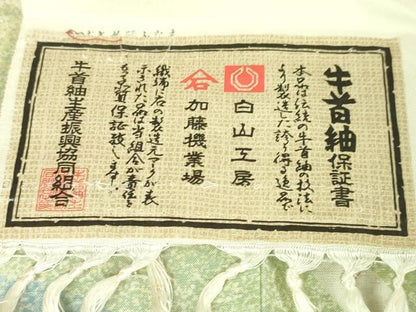 牛首紬保証書
本品は伝統の牛首紬の技法に
より製造した誇り得る逸品で
白山工房
加藤機業場
織端に右の製造元マークが表
示された品は当組合が責任を
もち品質保証致します。
牛首紬生産振興協同組合